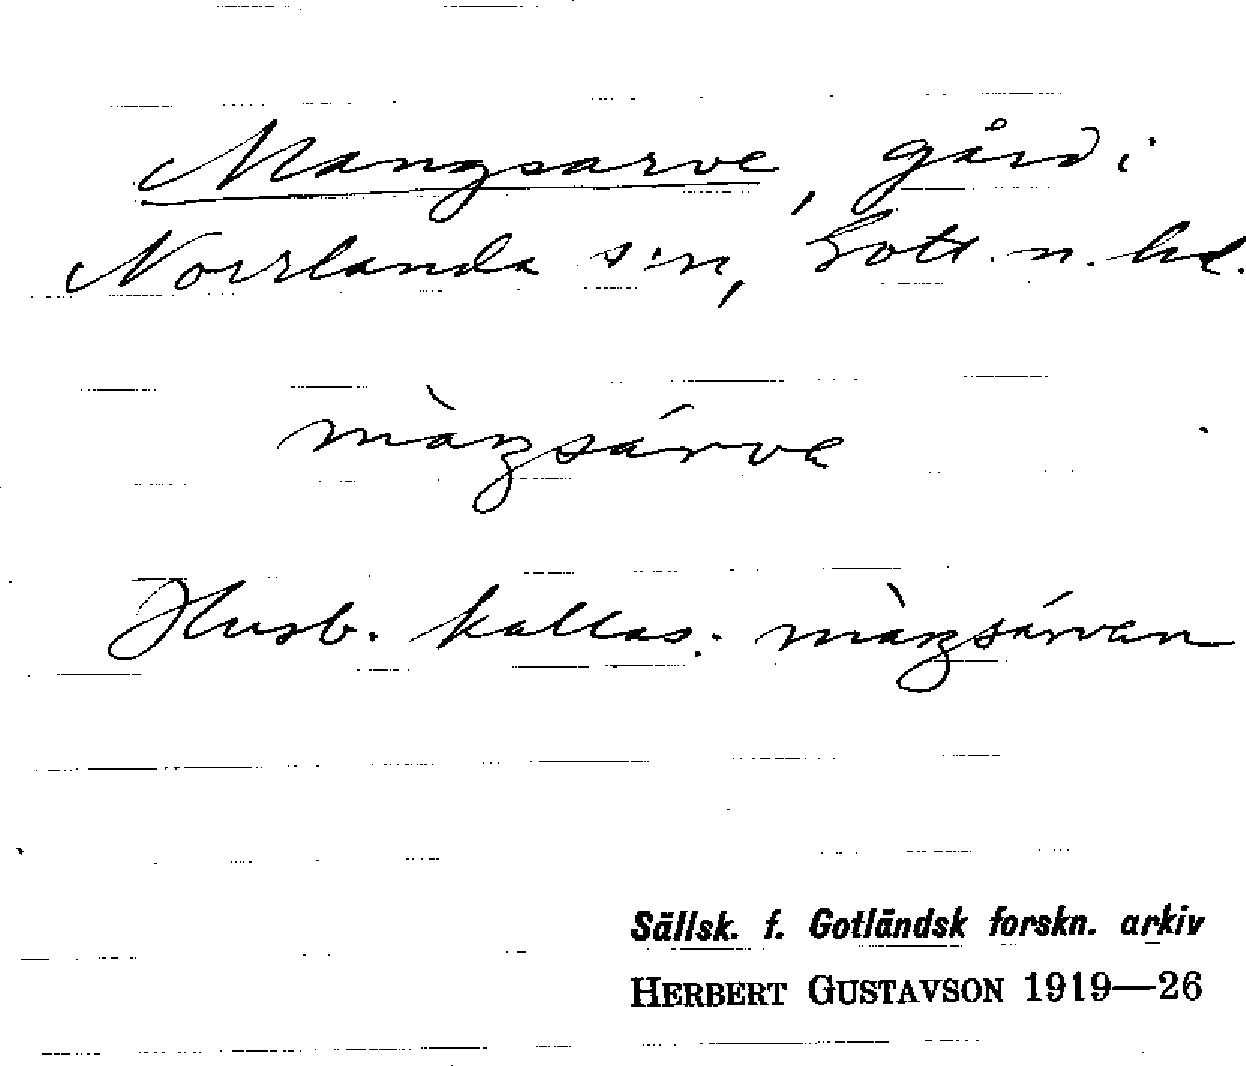 Mangsarve, gård i
Norrlanda s:n, Gotl. n. hd.
màŋsárve
Husb. kallas. màŋsárvan
Sällsk. f. Gotländsk forskn. arkiv
HERBERT GUSTAVSON 1919—26